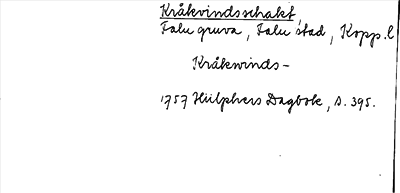 Kråkvindsschakt,
Falu gruva, Falu stad, Kopp. l
Kråkwinds-
1757 Hülphers Dagbok, s. 395.